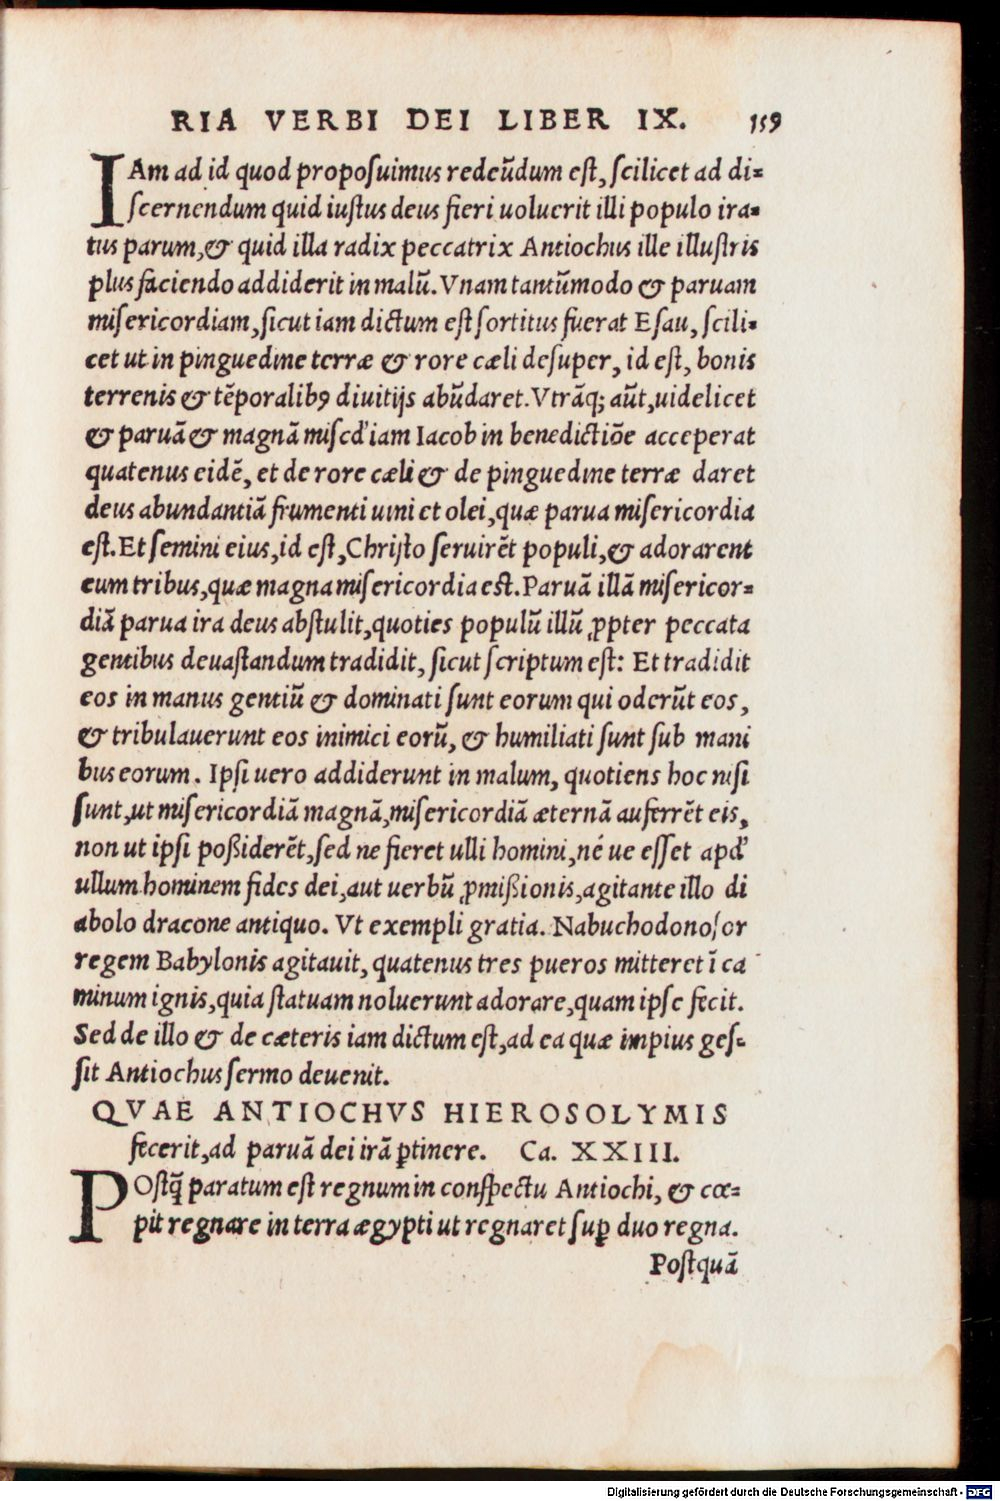 RIA VERBI DEI LIBER IX. 159
IAm ad id quod proposuimus redeũdum est, scilicet ad di-
scernendum quid iustus deus fieri uoluerit illi populo ira-
tus parum, & quid illa radix peccatrix Antiochus ille illustris
plus faciendo addiderit in malũ. Vnam tantũmodo & paruam
misericordiam, sicut iam dictum est sortitus fuerat Esau, scili-
cet ut in pinguedine terræ & rore cæli desuper, id est, bonis
terrenis & tẽporalibꝰ diuitijs abũdaret. Vtrãq; aũt, uidelicet
& paruã & magnã miscd'iam Iacob in benedictiõe acceperat
quatenus eidẽ, et de rore cæli & de pinguedine terræ daret
deus abundantiã frumenti uini et olei, quæ parua misericordia
est. Et semini eius, id est, Christo seruirẽt populi, & adorarent
eum tribus, quæ magna misericordia est. Paruã illã misericor-
diã parua ira deus abstulit, quoties populũ illũ ꝓpter peccata
gentibus deuastandum tradidit, sicut scriptum est: Et tradidit
eos in manus gentiũ & dominati sunt eorum qui oderũt eos,
& tribulauerunt eos inimici eorũ, & humiliati sunt sub mani
bus eorum. Ipsi uero addiderunt in malum, quotiens hoc nisi
sunt, ut misericordiã magnã, misericordiã æternã auferrẽt eis,
non ut ipsi poßiderẽt, sed ne fieret ulli homini, né ue esset apd'
ullum hominem fides dei, aut uerbũ ꝓmißionis, agitante illo di
abolo dracone antiquo. Vt exempli gratia. Nabuchodonosor
regem Babylonis agitauit, quatenus tres pueros mitteret ĩ ca
minum ignis, quia statuam noluerunt adorare, quam ipse fecit.
Sed de illo & de cæteris iam dictum est, ad ea quæ impius ges-
sit Antiochus sermo deuenit.
QVAE ANTIOCHVS HIEROSOLYMIS
fecerit, ad paruã dei irã ꝑtinere. Ca. XXIII.
POstq̃ paratum est regnum in conspectu Antiochi, & cœ-
pit regnare in terra ægypti ut regnaret suꝑ duo regna.
Postquã
Digitalisierung gefördert durch die Deutsche Forschungsgemeinschaft - DFG